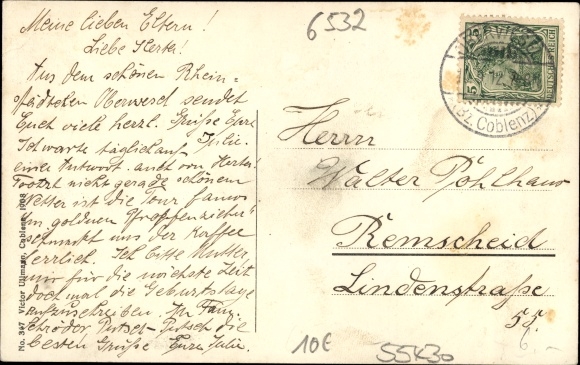 6532
Meine lieben Eltern!
Liebe Herta!
Aus dem schönen Rhein-
städtchen Oberwesel sendet
Euch viele herzl. Grüße Eure
Julie.
Ich warte täglich auf
einer Antwort auch von Herta!
Trotz nicht gerade schönem
Wetter ist die Tour famos
Im goldnen Propfenzieher
schmeckt uns der Kaffee
herrlich. Ich bitte Mutter,
mir für die nächste Zeit
doch mal die Geburtstage
aufzuschreiben. Ihr Fam.
Schröder die
besten Grüße Eure Julie.
Herrn
Walter Pohlhaus
Remscheid
Lindenstraße
55.
No. 347 Victor Ullmann, Coblenz 1908
DEUTSCHES REICH
5
(Bz. Coblenz)
10€
55430
6.-